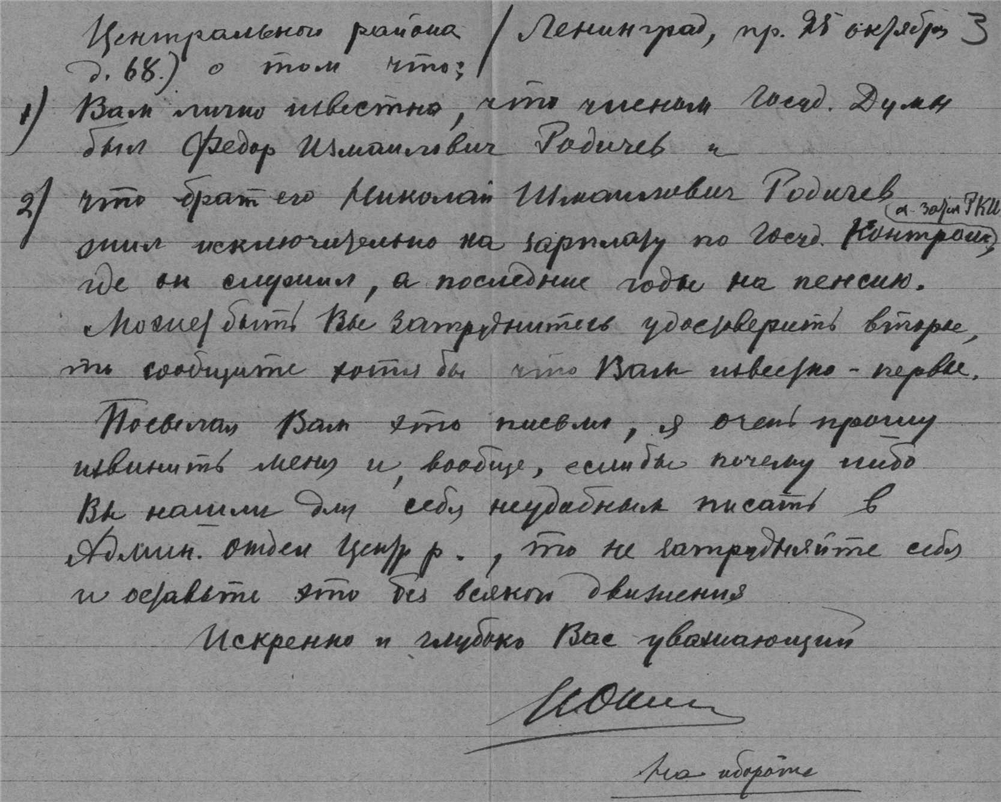 Центрального района / Ленинград, пр. 25 октября 3
д. 68.) о том что:
1) Вам лично известно, что членом Госуд. Думы
был Федор Измаилович Родичев и
2) что брат его Николай Измаилович Родичев
(а затем РКИ)
жил исключительно на зарплату по Госуд. Контролю,
где он служил, а последние годы на пенсию.
Может быть Вы затруднитесь удостоверить второе,
то сообщите хотя бы что Вам известно - первое.
Посылая Вам это письмо, я очень прошу
извинить меня и, вообще, если бы почему либо
Вы нашли для себя неудобным писать в
Админ. отдел Центр р., то не затрудняйте себя
и оставьте это без всякого движения
Искренно и глубоко Вас уважающий
На обороте